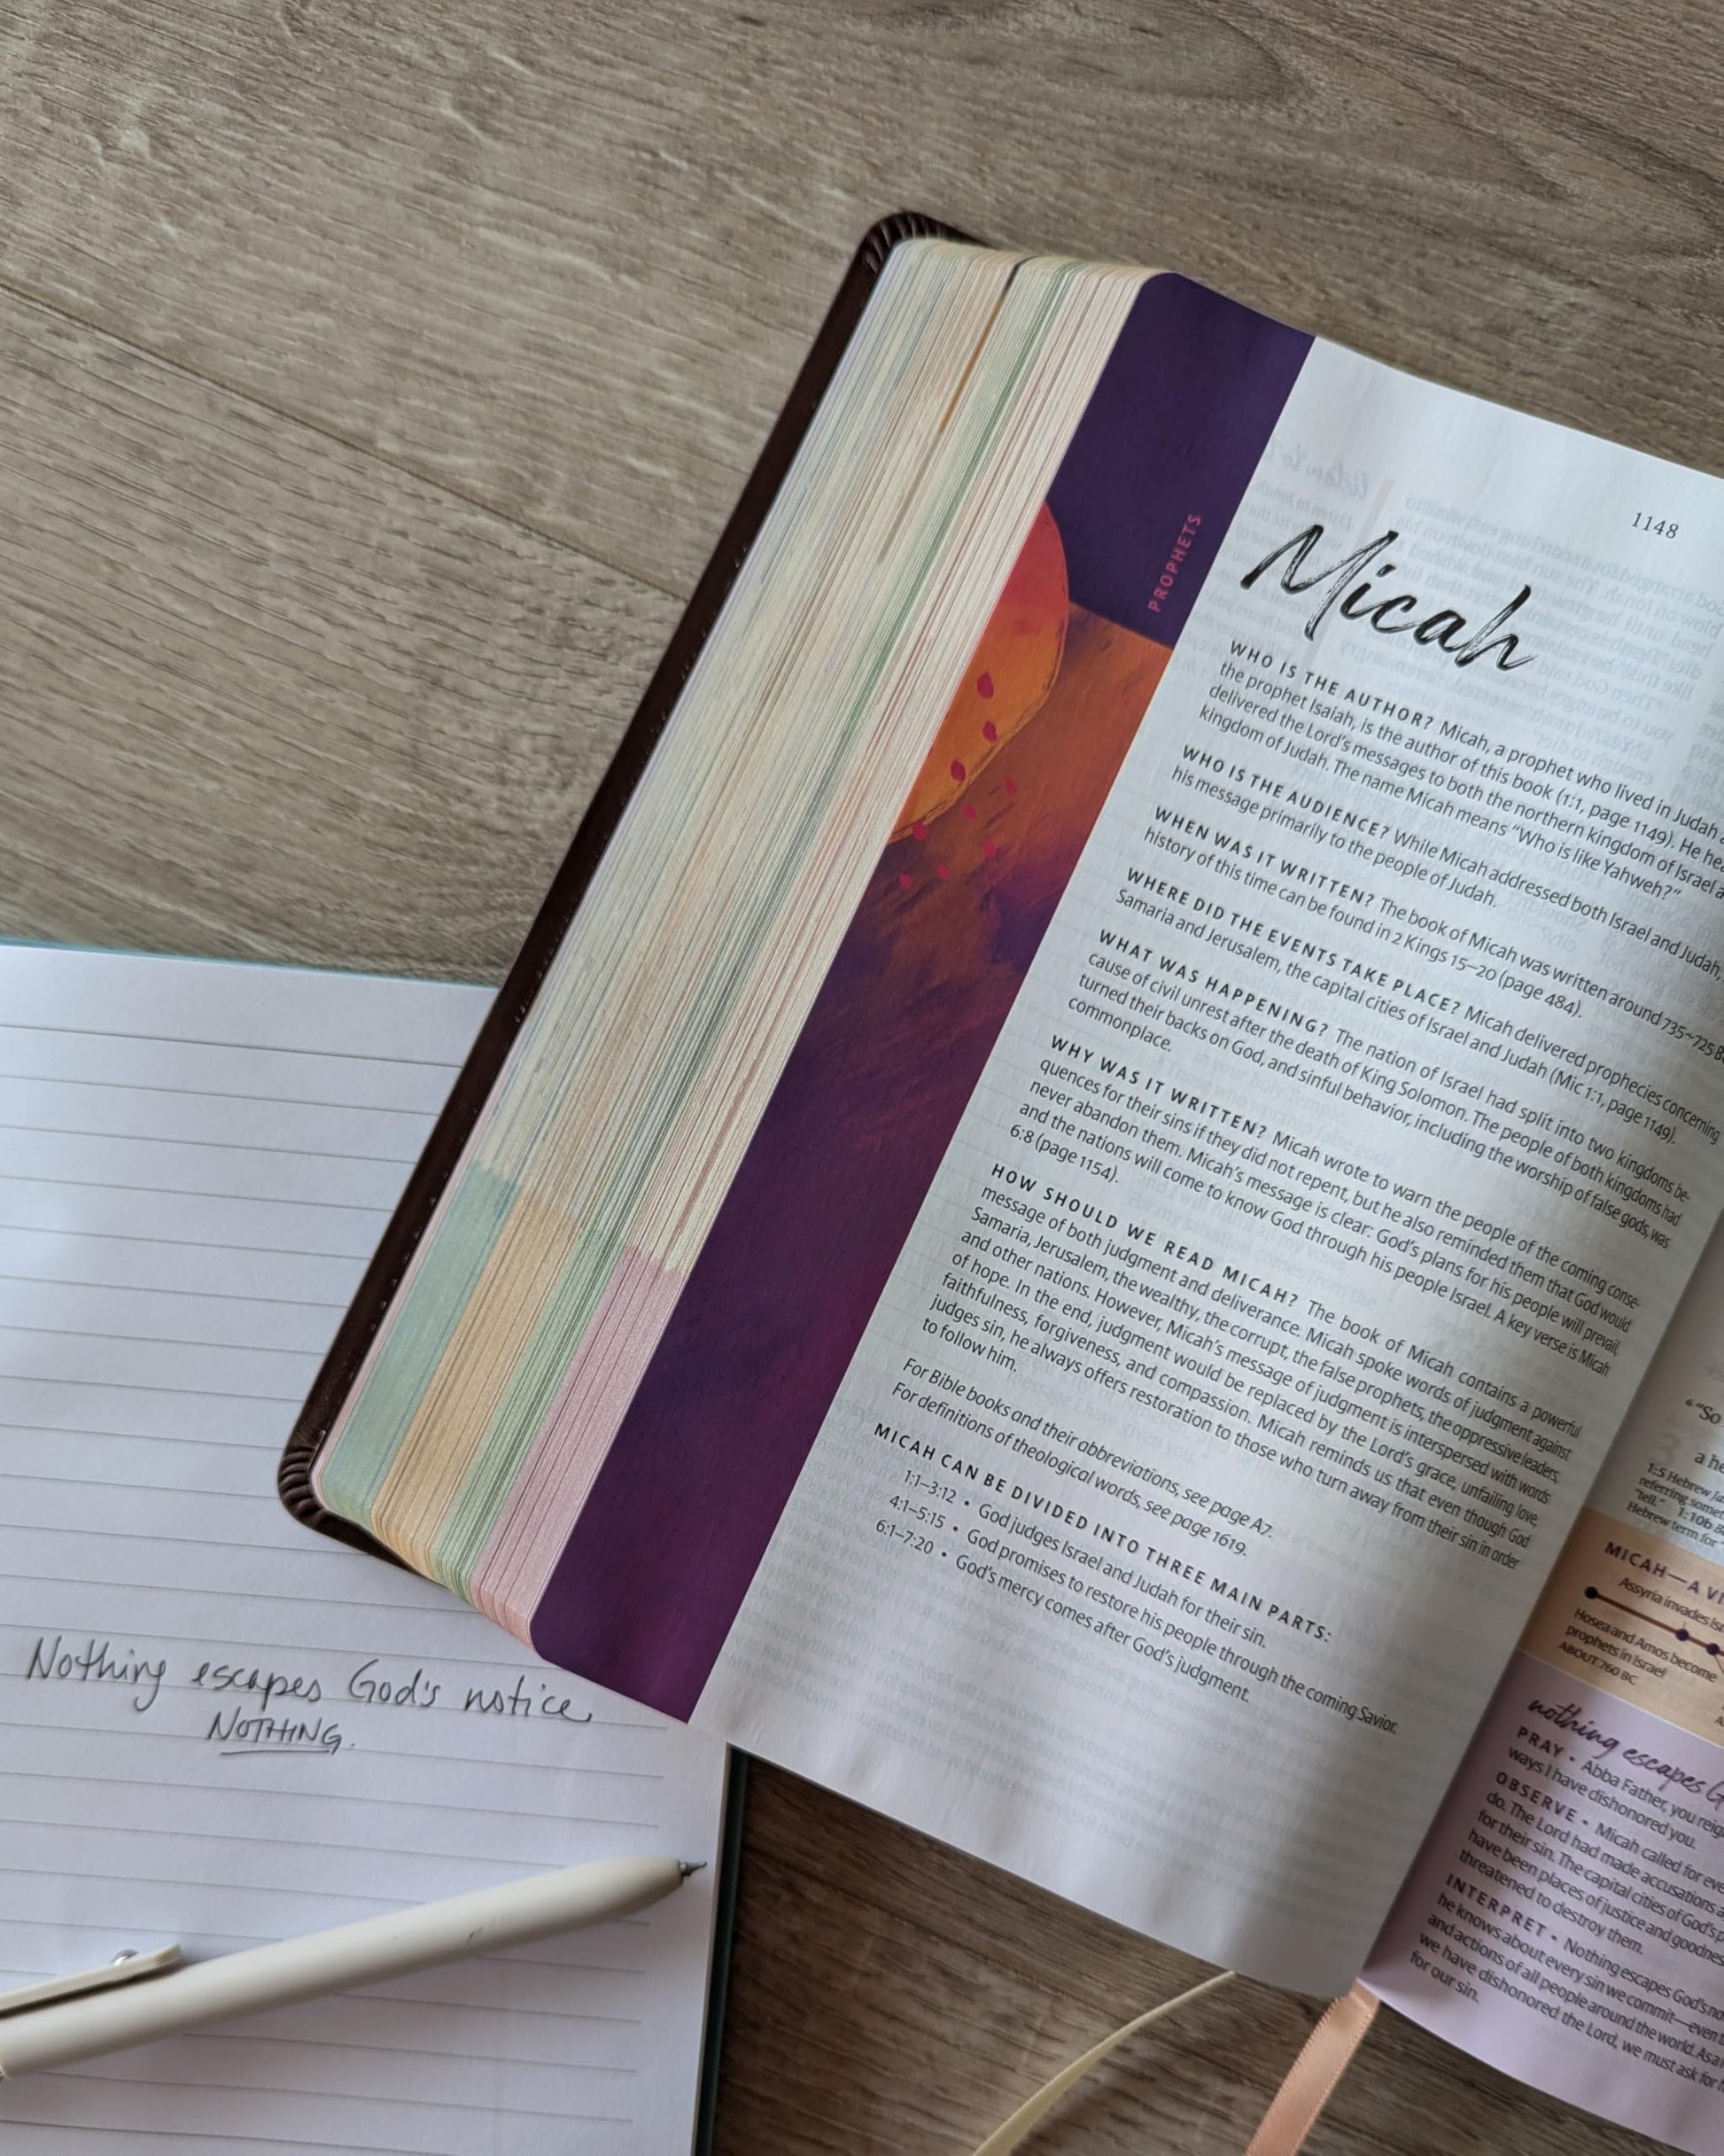 Nothing escapes God's notice
NOTHING.
PROPHETS
1148
Micah
WHO IS THE AUTHOR? Micah, a prophet who lived in Judah
the prophet Isaiah, is the author of this book (1:1, page 1149). He
delivered the Lord's messages to both the northern kingdom of Israel
kingdom of Judah. The name Micah means "Who is like Yahweh?"
WHO IS THE AUDIENCE? While Micah addressed both Israel and Judah,
his message primarily to the people of Judah.
WHEN WAS IT WRITTEN? The book of Micah was written around 735–725
history of this time can be found in 2 Kings 15–20 (page 484).
WHERE DID THE EVENTS TAKE PLACE? Micah delivered prophecies concerning
Samaria and Jerusalem, the capital cities of Israel and Judah (Mic 1:1, page 1149).
WHAT WAS HAPPENING? The nation of Israel had split into two kingdoms be-
cause of civil unrest after the death of King Solomon. The people of both kingdoms had
turned their backs on God, and sinful behavior, including the worship of false gods, was
commonplace.
WHY WAS IT WRITTEN? Micah wrote to warn the people of the coming conse-
quences for their sins if they did not repent, but he also reminded them that God would
never abandon them. Micah's message is clear: God's plans for his people will prevail,
and the nations will come to know God through his people Israel. A key verse is Micah
6:8 (page 1154).
HOW SHOULD WE READ MICAH? The book of Micah contains a powerful
message of both judgment and deliverance. Micah spoke words of judgment against
Samaria, Jerusalem, the wealthy, the corrupt, the false prophets, the oppressive leaders,
and other nations. However, Micah's message of judgment is interspersed with words
of hope. In the end, judgment would be replaced by the Lord's grace, unfailing love,
faithfulness, forgiveness, and compassion. Micah reminds us that even though God
judges sin, he always offers restoration to those who turn away from their sin in order
to follow him.
For Bible books and their abbreviations, see page A7.
For definitions of theological words, see page 1619.
MICAH CAN BE DIVIDED INTO THREE MAIN PARTS:
1:1–3:12 • God judges Israel and Judah for their sin.
4:1–5:15 • God promises to restore his people through the coming Savior.
6:1–7:20 • God's mercy comes after God's judgment.
6 "So
a he
1:5 Hebrew
referring
"tell." 1:10b
Hebrew term for
MICAH—A
Assyria invades
Hosea and Amos become
prophets in Israel
ABOUT 760 BC
nothing escapes
PRAY • Abba Father, you
ways I have dishonored you.
OBSERVE • Micah called for
do. The Lord had made accusations
for their sin. The capital cities of God's
have been places of justice and
threatened to destroy them.
INTERPRET • Nothing escapes God's
he knows about every sin we commit—even
and actions of all people around the world. As
we have dishonored the Lord, we must ask for
for our sin.